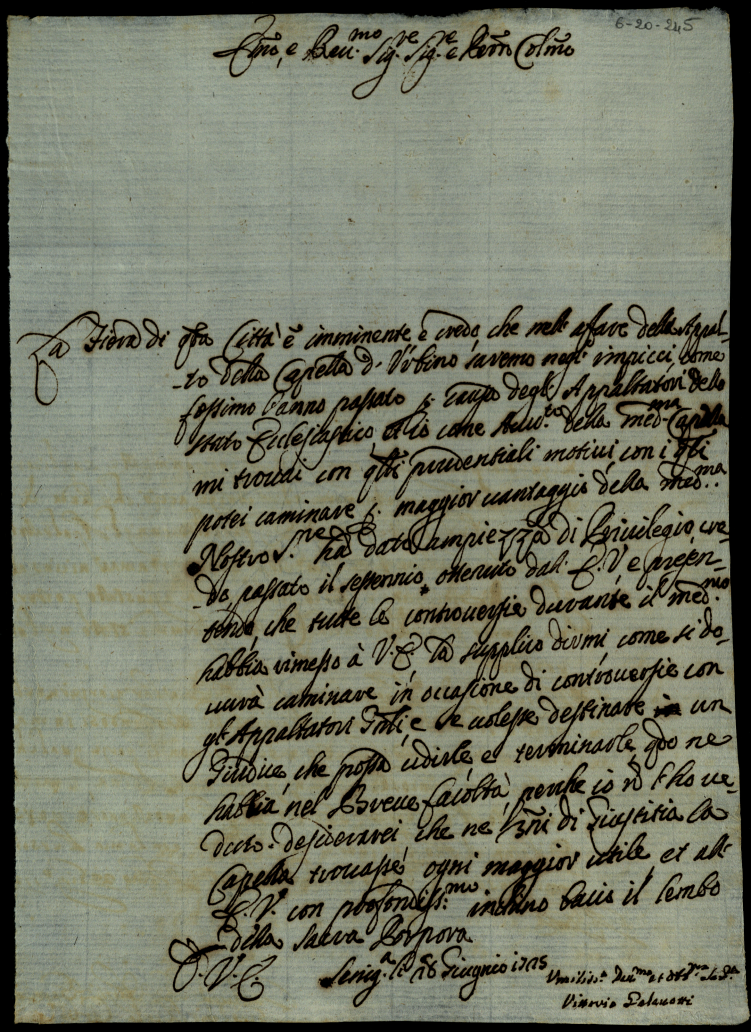 6-20-245
Emo, e Reu.mo Sig.re Sig.re e Pron Colmo
La Fiera di qta Città è imminente e credo, che nell' affare della Appal-
to della Capella d' Urbino saremo negl' impicci, come
fossimo l'anno passato p. causa degl' Appaltatori dello
stato Ecclesiastico, et io come della med.ma Capella
mi trovai con qlli prudentiali motivi con i qlli
potei caminare p. maggior vantaggio della med.ma
Nostro S.re ha dato ampiezza di Privilegio, cre-
do, passato il sessennio, ottenuto dall' E.V. e presen-
tendo, che tutte le controversie durante il med.mo
habbia rimesso à V.E. la supplico dirmi come si do-
uerà caminare in occasione di controversie con
gl' Appaltatori e se volesse destinare un
Giudice, che possa udirle e terminarle, qdo ne
habbia nel Breve facoltà, perche io no l'ho ve-
duto. desidererei che ne di Giustitia la
Capella trovasse ogni maggior utile, et all'
E.V. con profondiss.mo inchino bacio il lembo
della Sacra Porpora
D. V. E. Senig.a li 16 Giugnio 1715
Umiliss.o Deu.mo et
Vittorio